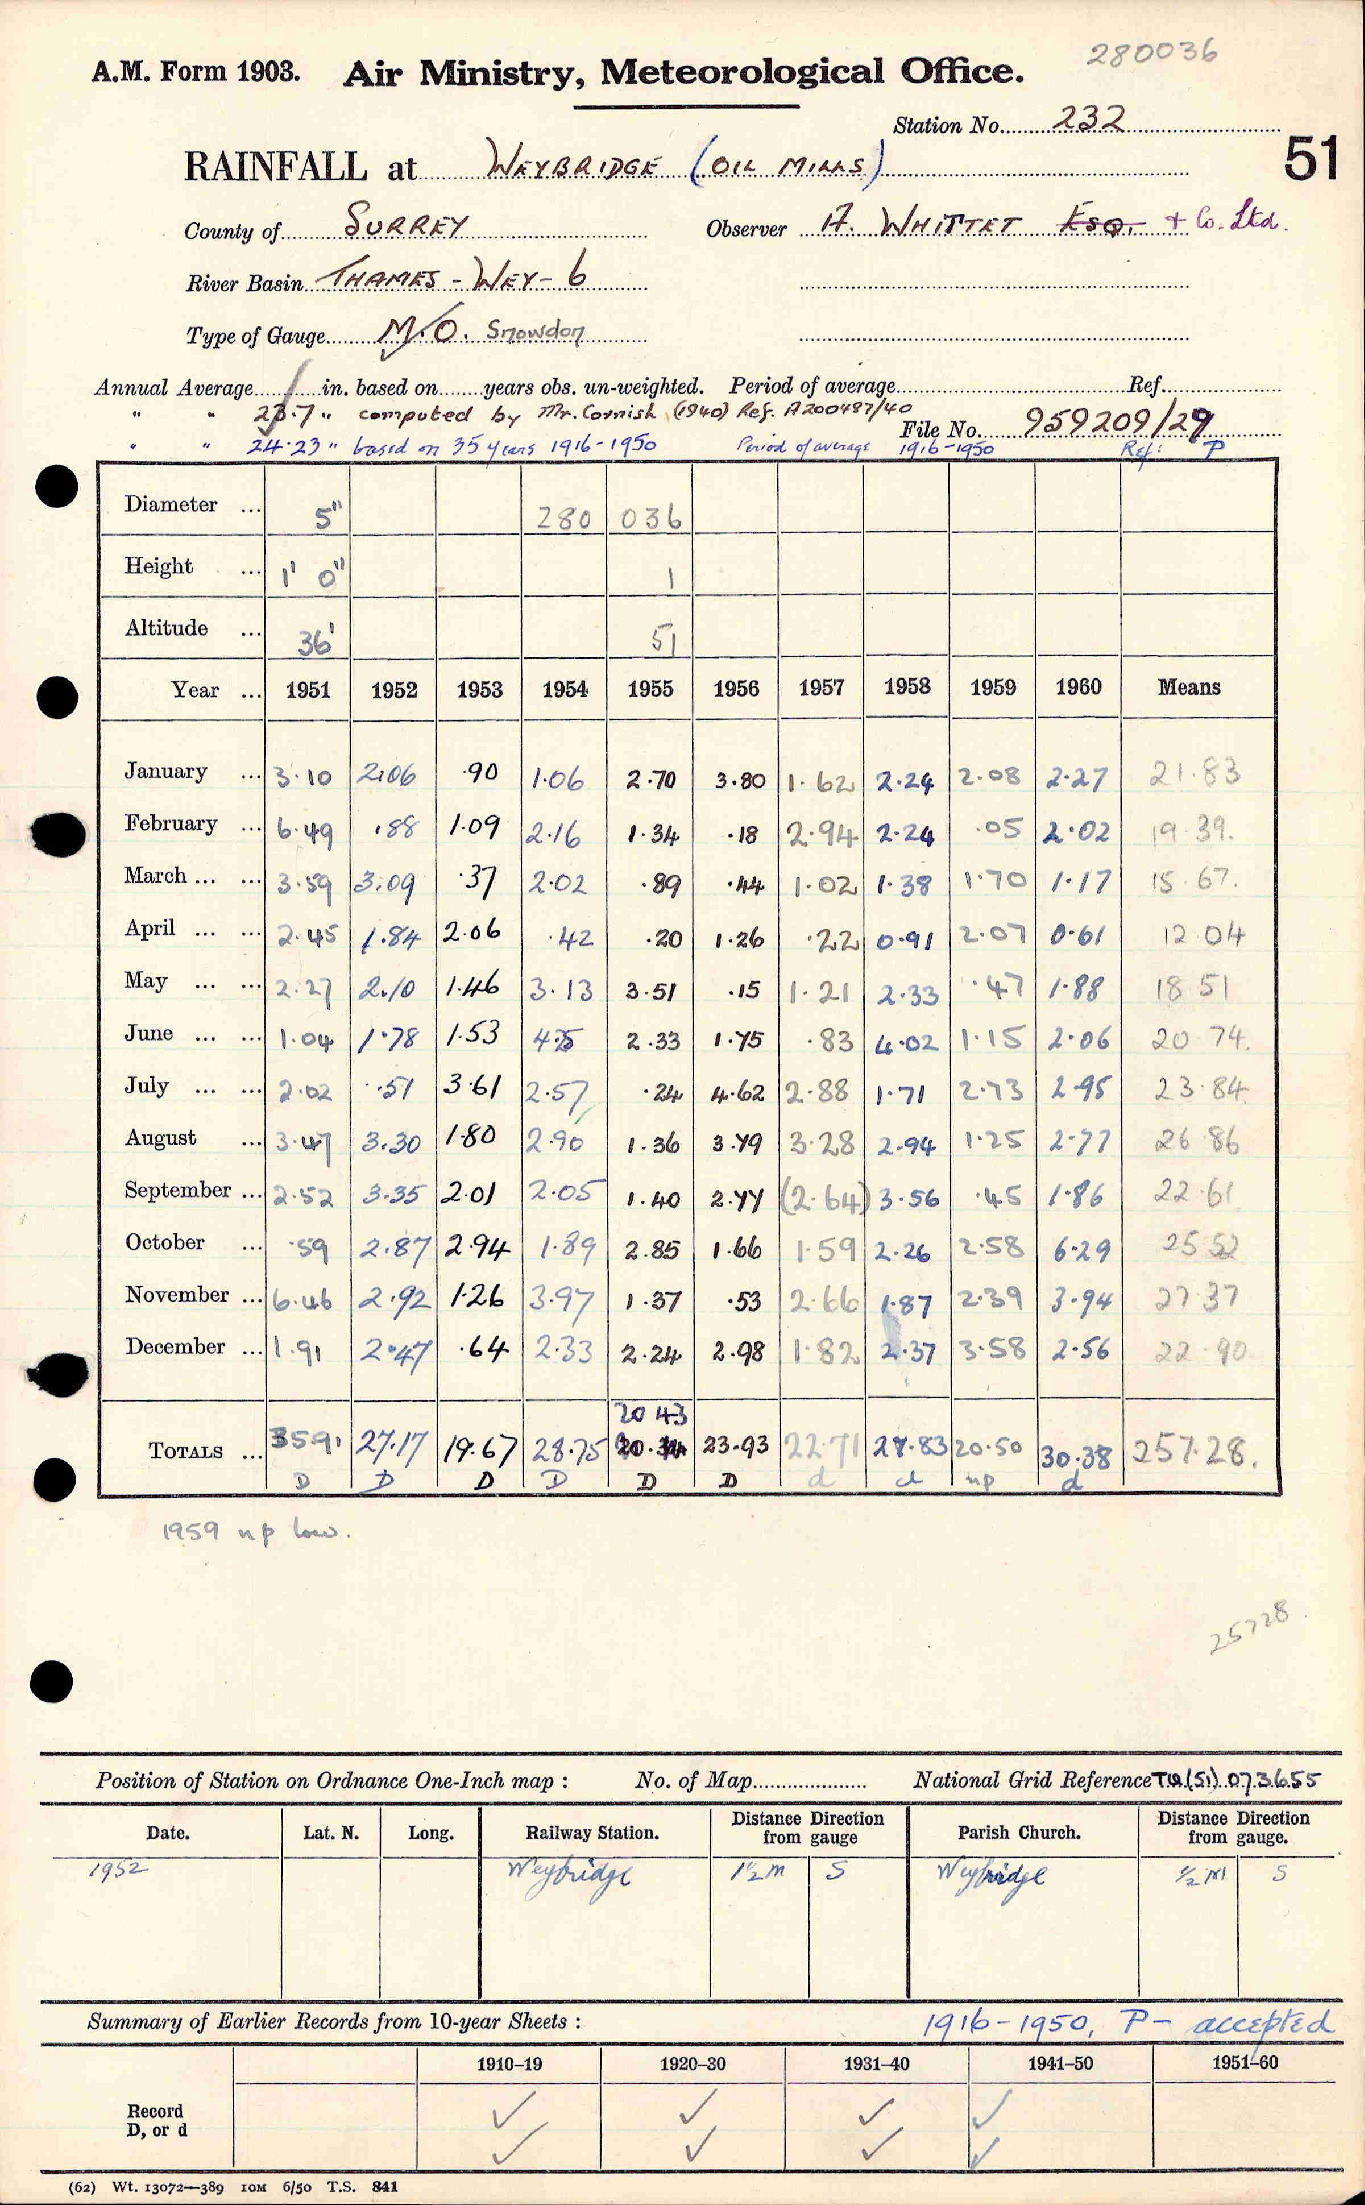 280036
A.M. Form 1903. Air Ministry, Meteorological Office.
Station No. 232
51
RAINFALL at WEYBRIDGE (OIL MILLS)
County of SURREY Observer A. WHITTET Esq. + Co. Ltd.
River Basin THAMES - WEY - 6
Type of Gauge M.O. Snowdon
Annual Average in. based on years obs. un-weighted. Period of average Ref.
" " 23.7" computed by Mr. Cornish (1940) Ref. A200487/40
File No. 959209/29
" " 24.23" based on 35 years 1916-1950 Period of average 1916-1950 Ref: P
Diameter ... 5" 280 036
Height ... 1' 0" 1
Altitude ... 36' 51
Year ... 1951 1952 1953 1954 1955 1956 1957 1958 1959 1960 Means
January ... 3.10 2.06 .90 1.06 2.70 3.80 1.62 2.24 2.08 2.27 21.83
February ... 6.49 .88 1.09 2.16 1.34 .18 2.94 2.24 .05 2.02 19.39.
March ... ... 3.59 3.09 .37 2.02 .89 .44 1.02 1.38 1.70 1.17 15.67.
April ... ... 2.45 1.84 2.06 .42 .20 1.26 .22 0.91 2.07 0.61 12 04
May ... ... 2.27 2.10 1.46 3.13 3.51 .15 1.21 2.33 .47 1.88 18 51
June ... ... 1.04 1.78 1.53 4.25 2.33 1.75 .83 4.02 1.15 2.06 20 74.
July ... ... 2.02 .51 3.61 2.57 .24 4.62 2.88 1.71 2.73 2.95 23.84
August ... 3.47 3.30 1.80 2.90 1.36 3.79 3.28 2.94 1.25 2.77 26 86
September ... 2.52 3.35 2.01 2.05 1.40 2.77 (2.64) 3.56 .45 1.86 22.61
October ... .59 2.87 2.94 1.89 2.85 1.66 1.59 2.26 2.58 6.29 25 52
November ... 6.46 2.92 1.26 3.97 1.37 .53 2.66 1.87 2.39 3.94 27 37
December ... 1.91 2.47 .64 2.33 2.24 2.98 1.82 2.37 3.58 2.56 22 90
20 43
TOTALS ... 35 91 27.17 19.67 28.75 23.93 22.71 27.83 20.50 30.38 257.28.
D D D D D D d d np d
1959 np low.
25728.
Position of Station on Ordnance One-Inch map : No. of Map National Grid Reference TQ(51) 073655
Date. Lat. N. Long. Railway Station. Distance Direction from gauge Parish Church. Distance Direction from gauge.
1952 Weybridge 1½ M S Weybridge ½ M S
Summary of Earlier Records from 10-year Sheets : 1916-1950, P - accepted
1910-19 1920-30 1931-40 1941-50 1951-60
Record ✓ ✓ ✓ ✓
D, or d ✓ ✓ ✓ ✓
(62) Wt. 13072—389 10M 6/50 T.S. 841